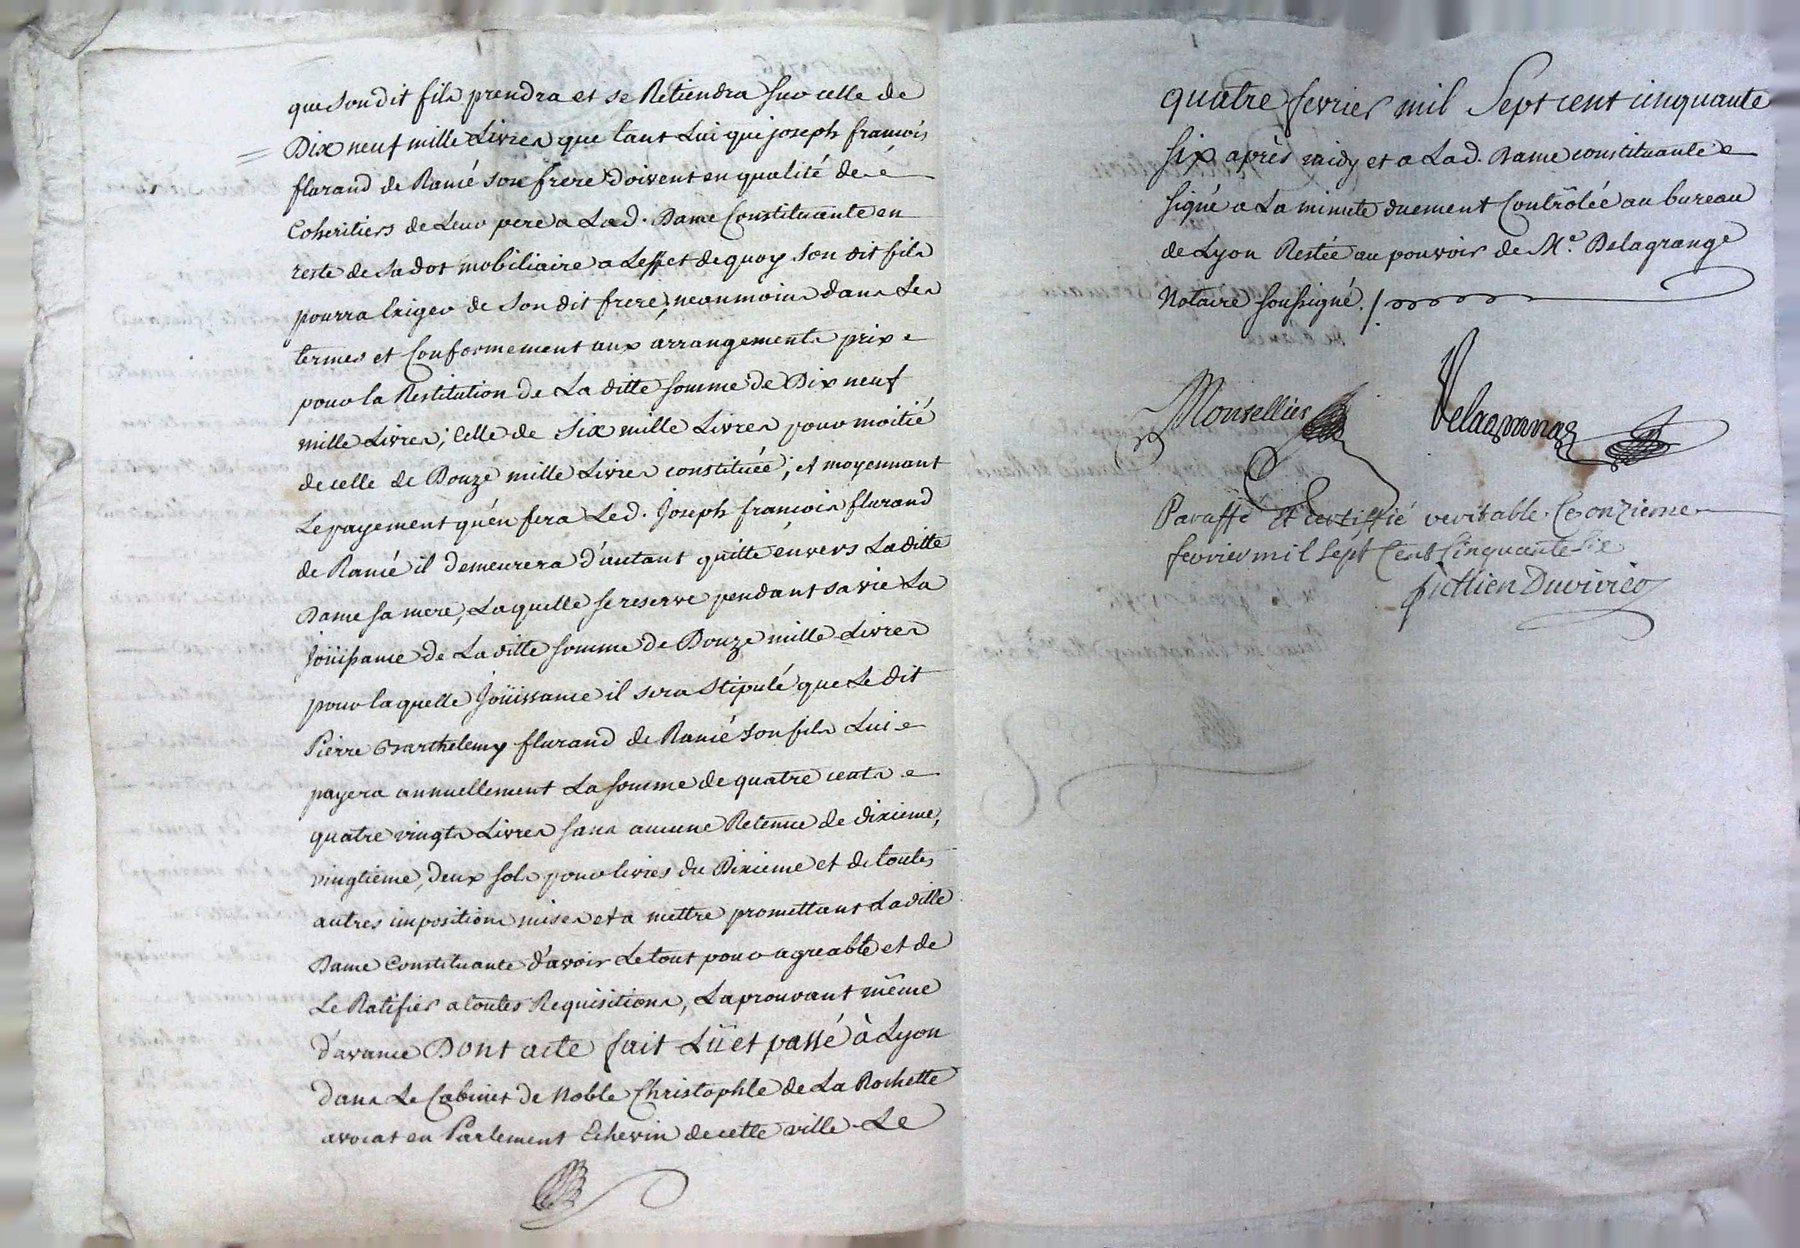 que son dit fils prendra et se Retiendra sur celle de
Dix neuf mille Livres que tant Lui que joseph francois
flurand de Ramé son frere doivent en qualité de
Coheritiers de Leur pere a Lad. Dame Constituante en
reste de sa dot mobiliaire a L'effet de quoy son dit fils
pourra Exiger de son dit frere, neanmoins dans Les
termes et Conformement aux arrangements prix
pour la Restitution de La ditte somme de Dix neuf
mille Livres; Celle de six mille Livres pour moitié
de celle de Douze mille Livres constituée; et moyennant
Le payement qu'en fera Led. Joseph francois flurand
de Ramé il demeurera d'autant quitte envers La ditte
Dame sa mere, Laquelle se reserve pendant sa vie La
Joüissance de La ditte somme de Douze mille Livres
pour laquelle Joüissance il sera stipulé que Le dit
Pierre Barthelemy flurand de Ramé son fils Lui
payera annuellement La somme de quatre cents
quatre vingts Livres sans aucune Retenue de dixieme,
vingtieme, deux sols pour livres du Dixieme et de toutes
autres impositions mises et a mettre promettant La ditte
Dame Constituante d'avoir Le tout pour agreable et de
Le Ratifier a toutes Requisitions, L'aprouvant même
d'avance Dont acte fait Lü et passé à Lyon
dans Le Cabinet de Noble Christophle de La Rochette
avocat en Parlement Echevin de cette ville Le
quatre fevrier mil Sept cent cinquante
six après midy et a Lad. Dame constituante
signé a La minute duement Contrôlée au bureau
de Lyon Restée au pouvoir de Me. Delagrange
Notaire soussigné ./.
Monsellier Delagrange
Paraffé Et certiffié veritable. Ce onzieme
fevrier mil sept Cent Cinquante six
fichien Duvivier